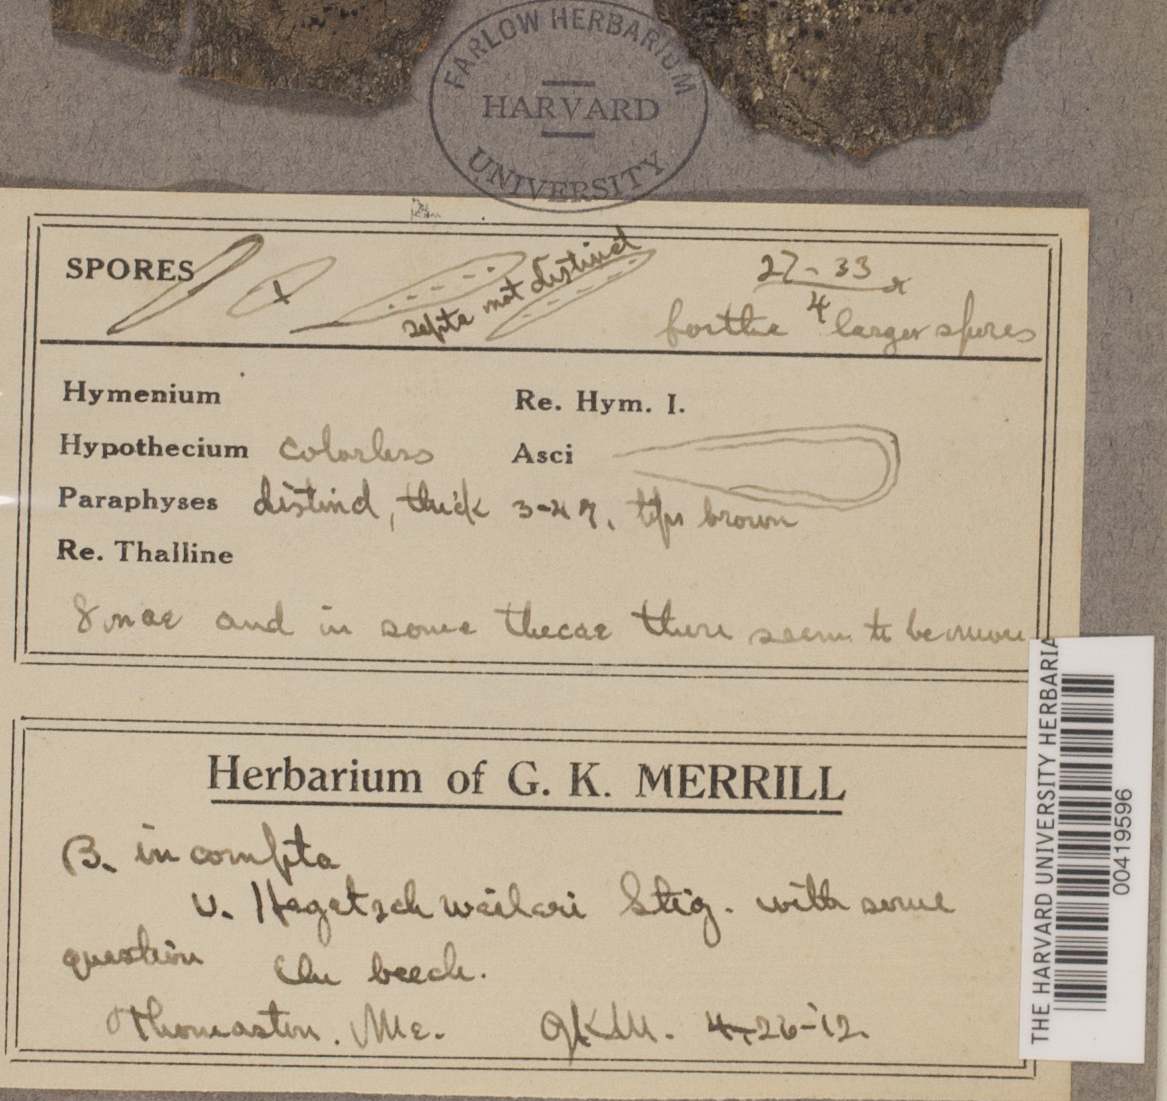 FARLOW HERBARIUM
HARVARD
UNIVERSITY
SPORES
septa not distinct
27-33
4
for the larger spores
Hymenium Re. Hym. I.
Hypothecium colorless Asci
Paraphyses distinct, thick 3-4 tips brown
Re. Thalline
8 nae and in some thecae there seem to be more
Herbarium of G. K. MERRILL
B. incompta
v. Hegetschweileri Stiz. with some
question On beech.
Thomaston. Me. GKM. 4-26-'12.
THE HARVARD UNIVERSITY HERBARIA
00419596